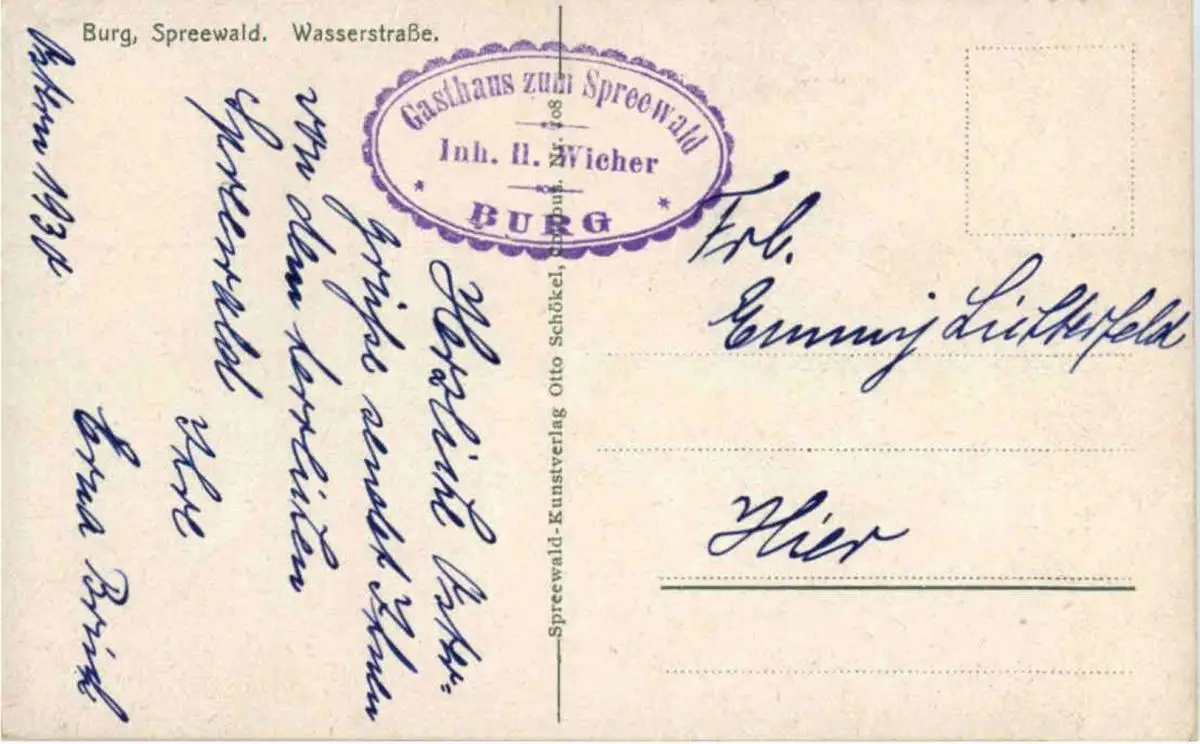 Burg, Spreewald. Wasserstraße.
Gasthaus zum Spreewald
Inh. H. Wicher
BURG
Herzliche Oster-
grüße sendet Ihnen
von dem herrlichen
Spreewald
Ihre
Erna
Ostern 193
Spreewald-Kunstverlag Otto Schökel, Cottbus. Nr.
Frl.
Emmy Lichterfeld
Hier